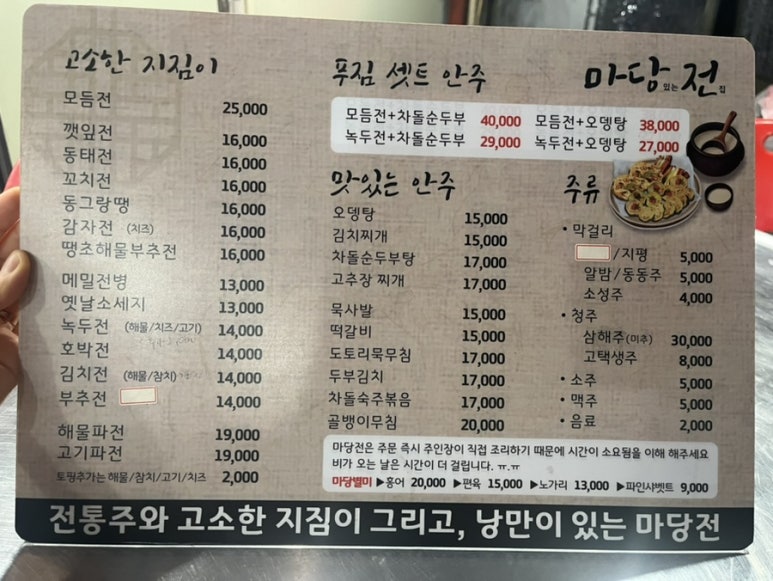 고소한 지짐이
모듬전 25,000
깻잎전 16,000
동태전 16,000
꼬치전 16,000
동그랑땡 16,000
감자전 (치즈) 16,000
땡초해물부추전 16,000
메밀전병 13,000
옛날소세지 13,000
녹두전 (해물/치즈/고기) 14,000
호박전 14,000
김치전 (해물/참치) 14,000
부추전 14,000
해물파전 19,000
고기파전 19,000
토핑추가는 해물/참치/고기/치즈 2,000
푸짐 셋트 안주
모듬전+차돌순두부 40,000 모듬전+오뎅탕 38,000
녹두전+차돌순두부 29,000 녹두전+오뎅탕 27,000
마당있는전집
맛있는 안주
오뎅탕 15,000
김치찌개 15,000
차돌순두부탕 17,000
고추장 찌개 17,000
묵사발 15,000
떡갈비 15,000
도토리묵무침 17,000
두부김치 17,000
차돌숙주볶음 17,000
골뱅이무침 20,000
주류
• 막걸리
/지평 5,000
알밤/동동주 5,000
소성주 4,000
• 청주
삼해주(미추) 30,000
고택생주 8,000
• 소주 5,000
• 맥주 5,000
• 음료 2,000
마당전은 주문 즉시 주인장이 직접 조리하기 때문에 시간이 소요됨을 이해 해주세요
비가 오는 날은 시간이 더 걸립니다. ㅠ.ㅠ
마당별미 ▶홍어 20,000 ▶편육 15,000 ▶노가리 13,000 ▶파인샤벳트 9,000
전통주와 고소한 지짐이 그리고, 낭만이 있는 마당전